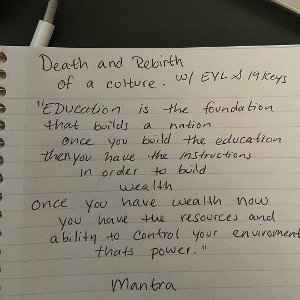 Death and Rebirth
of a culture. w/ EYL & 19Keys
"EDucation is the foundation
that builds a nation
once you build the education
then you have the instructions
in order to build
wealth
once you have wealth now
you have the resources and
ability to control your enviroment
thats power."
Mantra